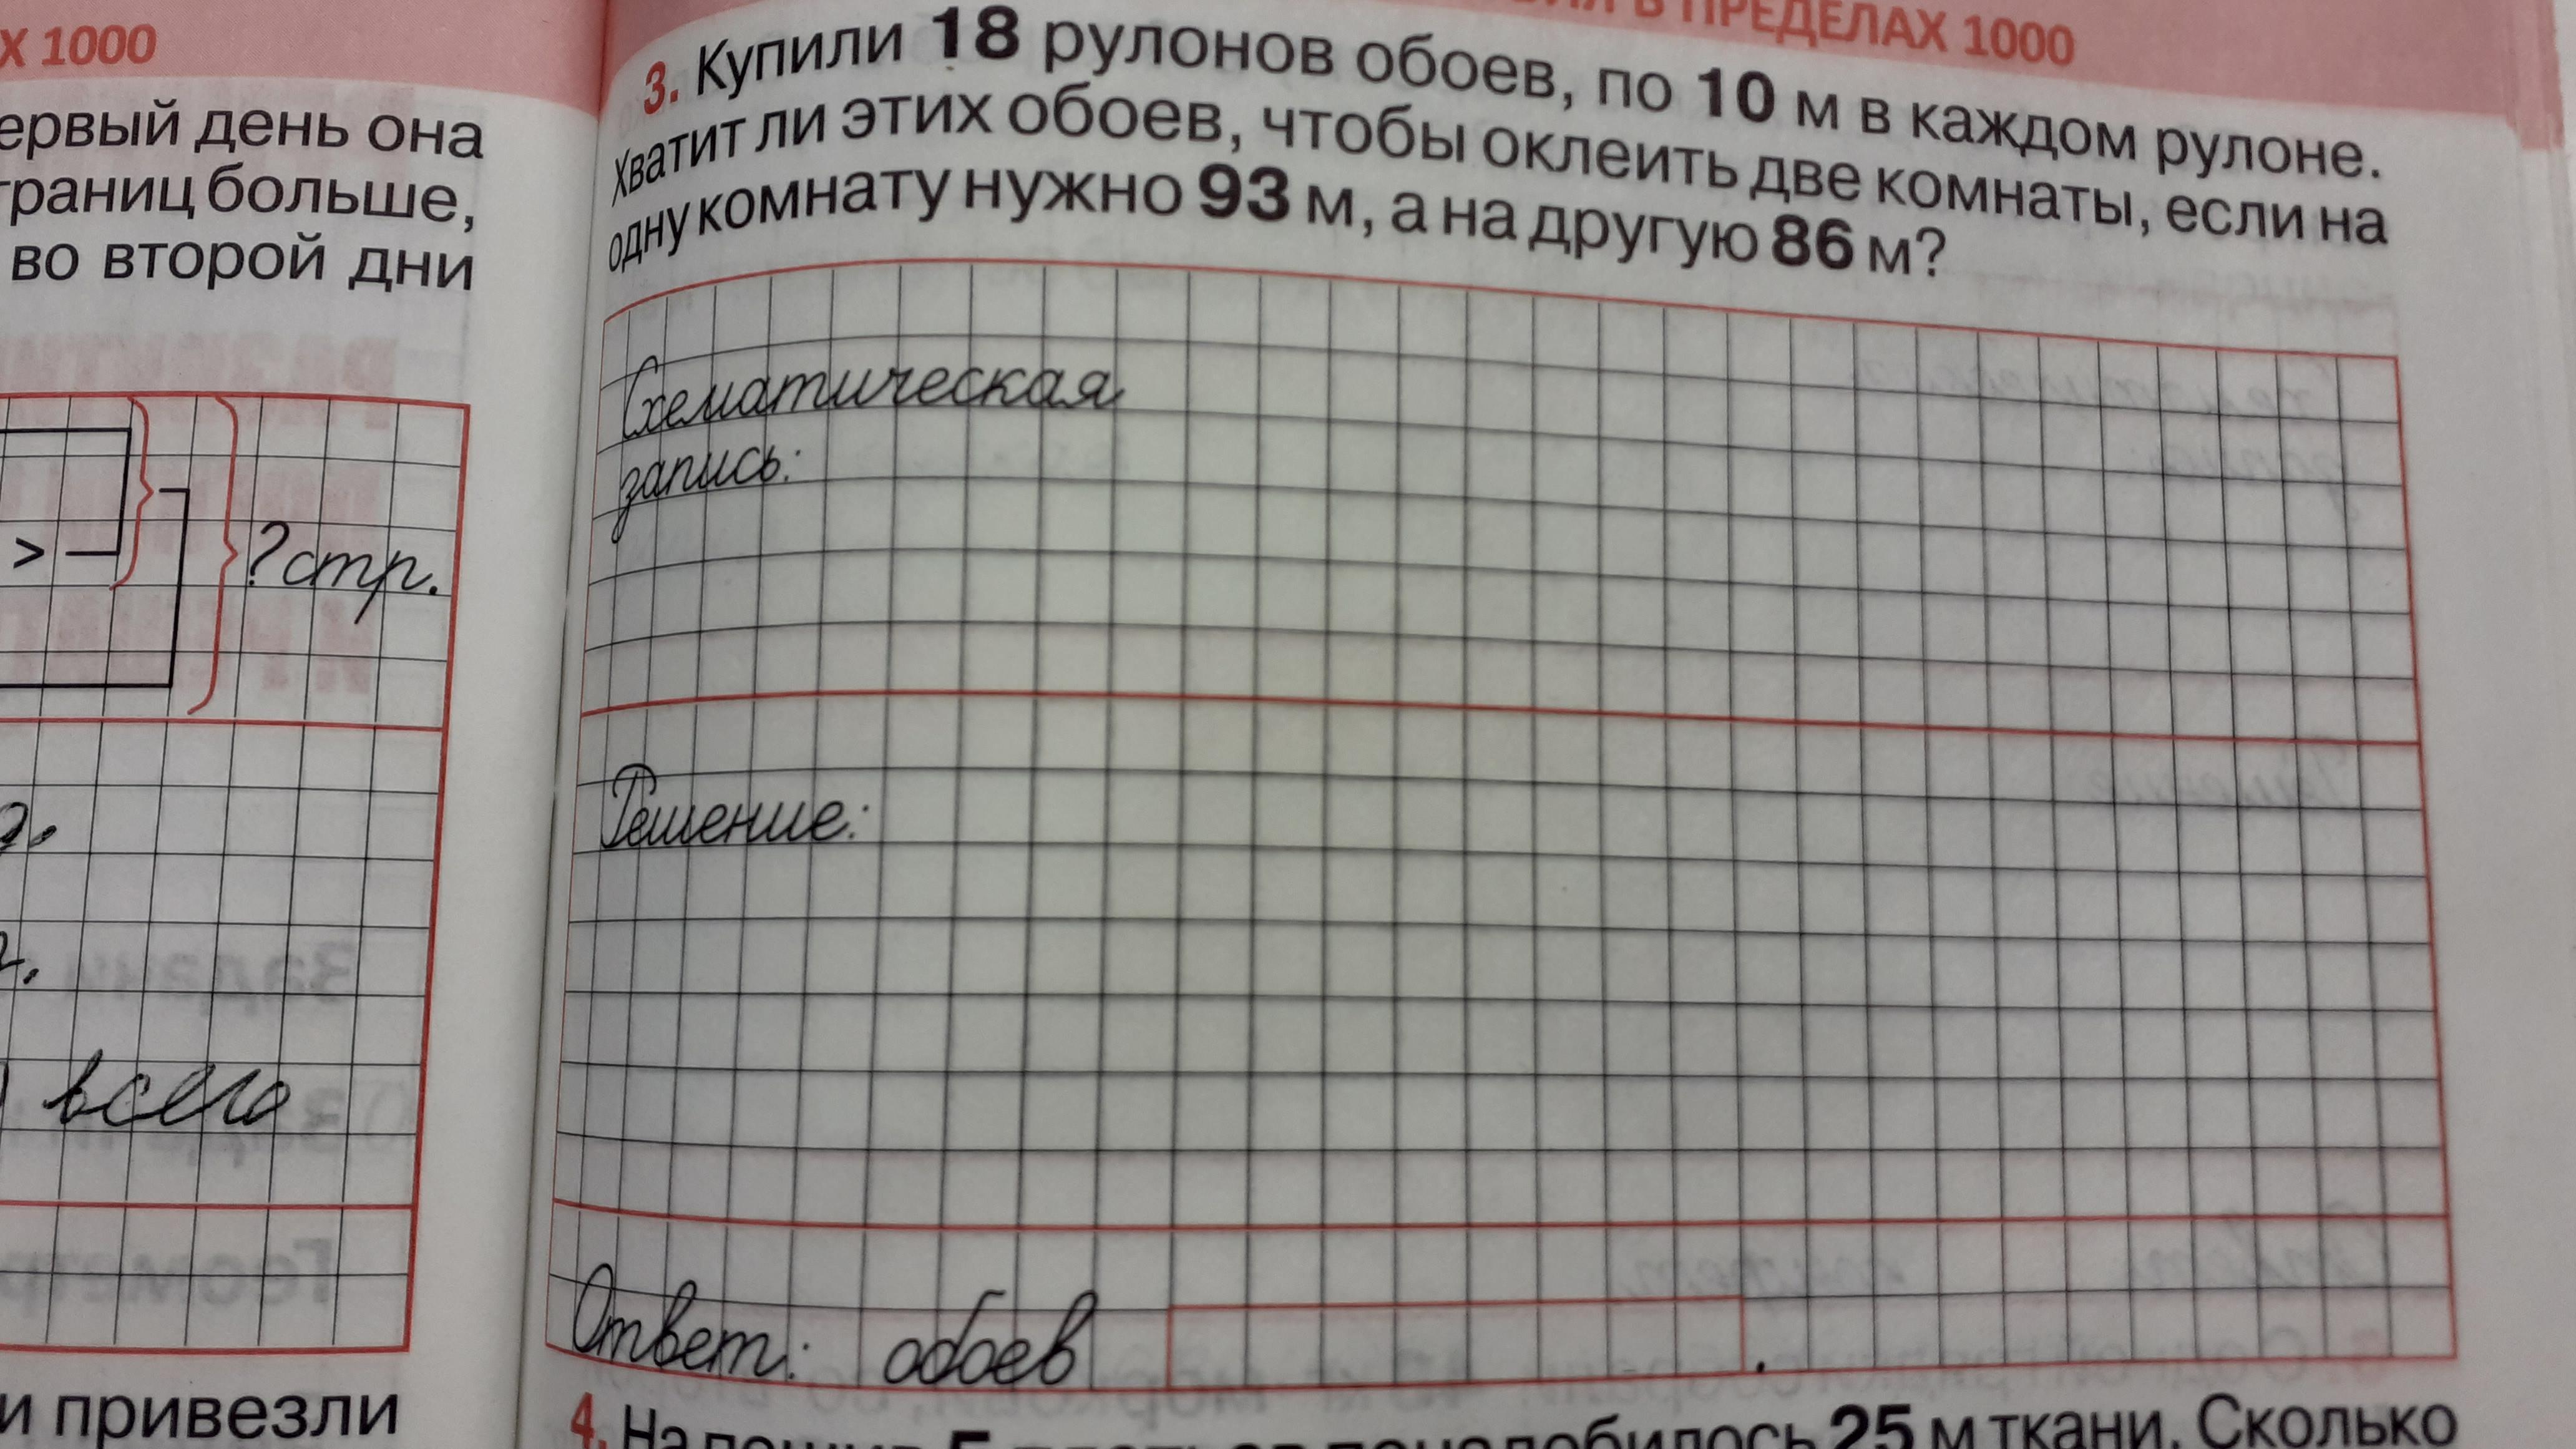 Х 1000
ервый день она
траниц больше,
во второй дни
>
? стр.
всего
и привезли
В ПРЕДЕЛАХ 1000
3. Купили 18 рулонов обоев, по 10 м в каждом рулоне.
Хватит ли этих обоев, чтобы оклеить две комнаты, если на
одну комнату нужно 93 м, а на другую 86 м?
Схематическая
запись:
Решение:
Ответ: обоев .
4. На 5 понадобилось 25 м ткани. Сколько